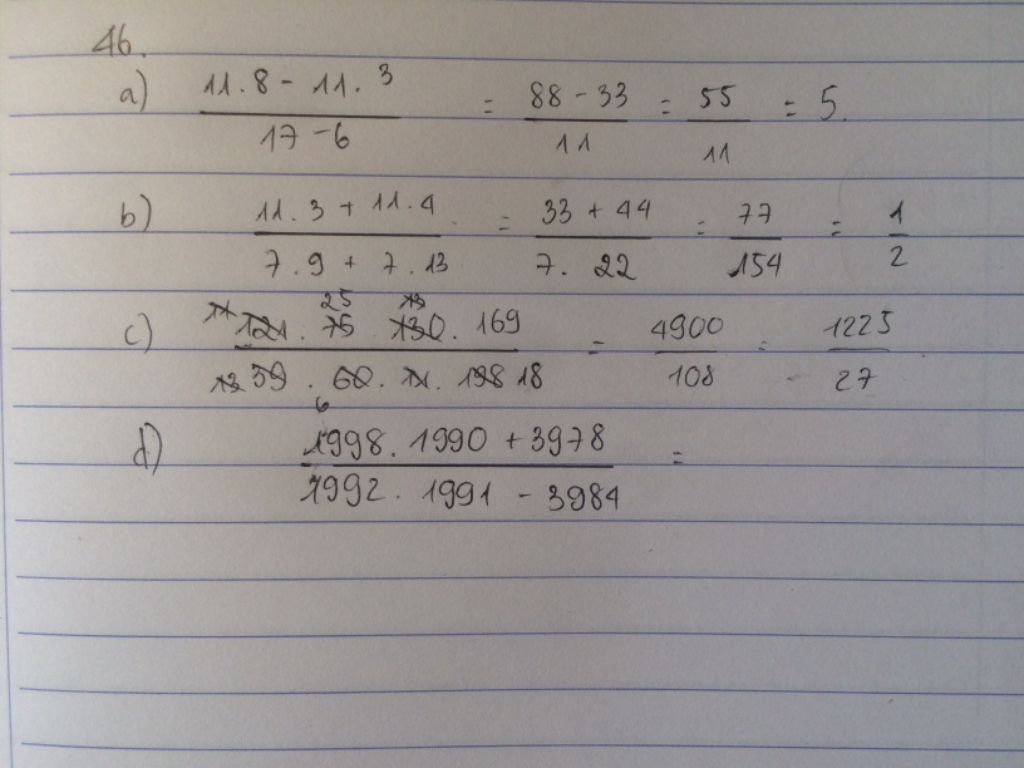 46.
a) 11.8 - 11.3 / 17 - 6 = 88 - 33 / 11 = 55 / 11 = 5.
b) 11.3 + 11.4 / 7.9 + 7.13 = 33 + 44 / 7.22 = 77 / 154 = 1 / 2
25 13
c) 11 121. 75 130. 169 / 13 39. 60. 11. 198 18 = 4900 / 108 = 1225 / 27
6
d) 1998. 1990 + 3978 / 1992. 1991 - 3984 =